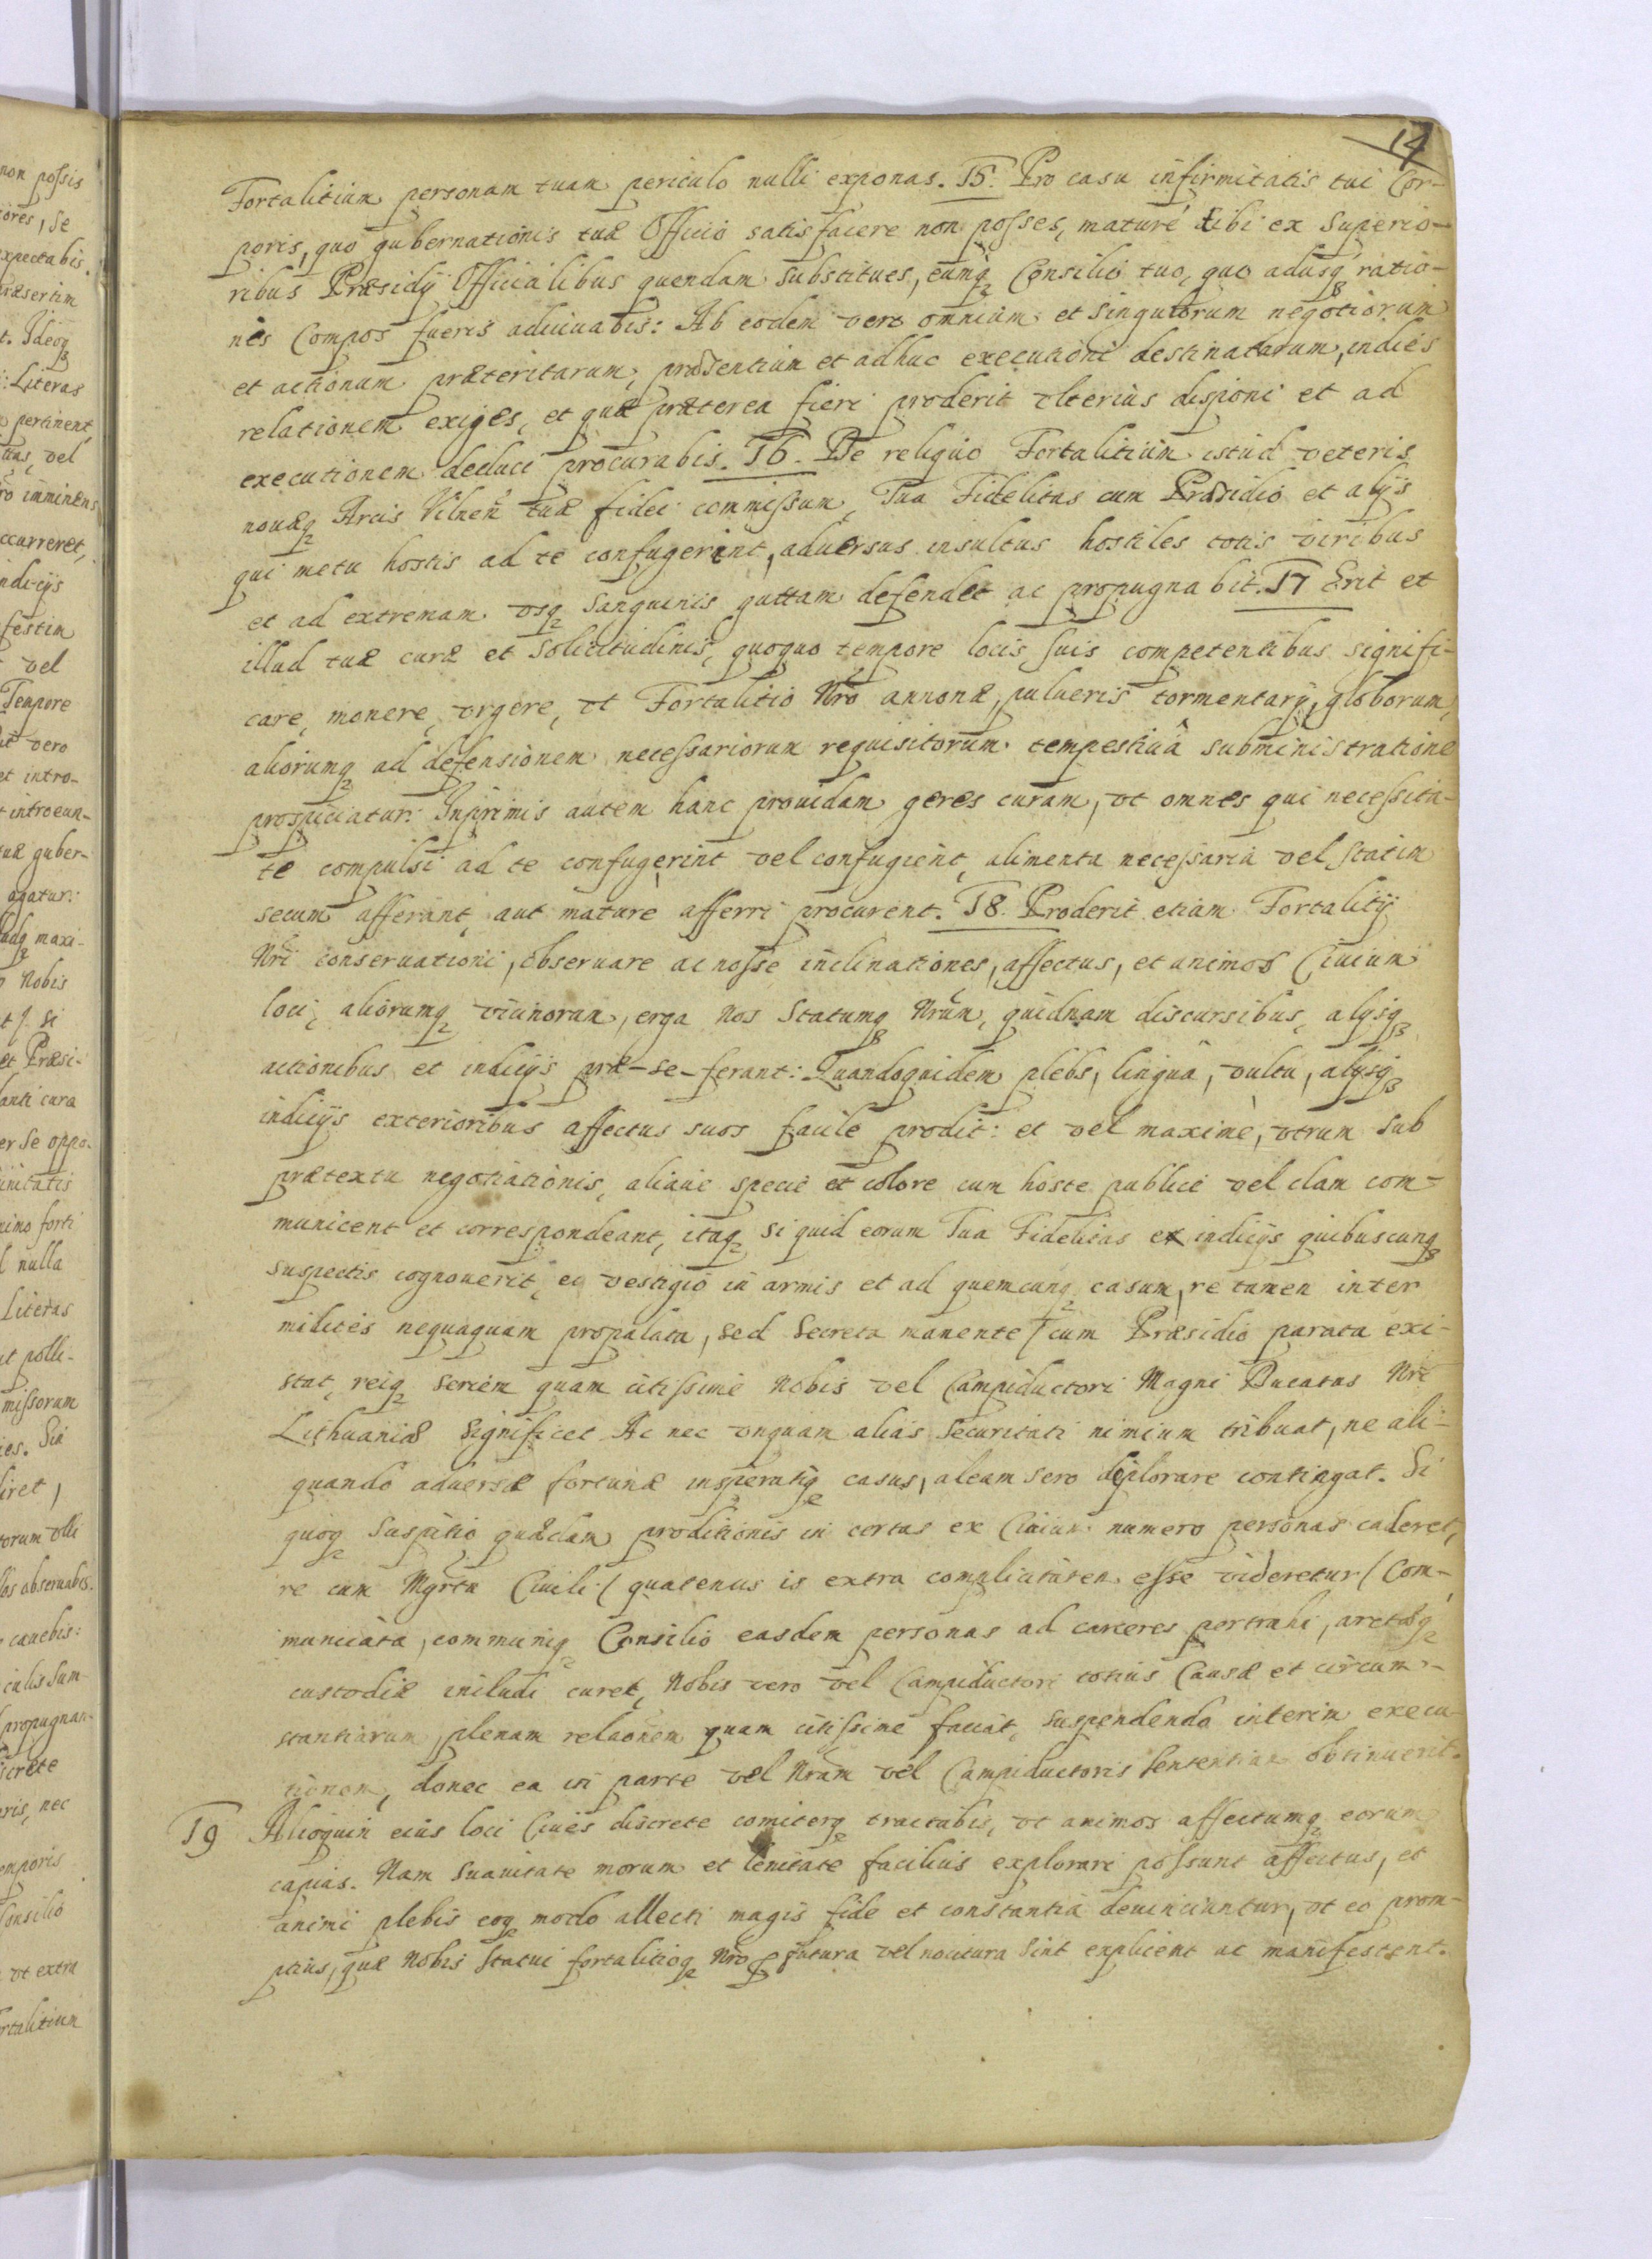 14
Fortalitium personam tuam periculo nulli exponas. 15. Pro casu infirmitatis tui Cor-
poris, quo gubernationis tuæ Officio satisfacere non posses, maturé tibi ex Superio-
ribus Præsidÿ Officialibus quendam substitues, eumq Consilio tuo, quo adusq ratio-
nis Compos fueris adiuuabis: Ab eodem vero omnium et singulorum negotiorum
et actionum præteritarum, præsentium et adhuc executioni destinatarum, indies
relationem exiges, et quæ præterea fieri proderit vlterius disponi et ad
executionem deduci procurabis. 16. De reliquo Fortalitium istud veteris
nouæq Arcis Vilneñ tuæ fidei commissum, Tua Fidelitas cum Præsidio et alÿs
qui metu hostis ad te confugerint, aduersus insultus hostiles totis viribus
et ad extremam vsq Sanguinis guttam defendet ac propugnabit. 17 Erit et
illud tuæ curæ et Solicitudinis, quoquo tempore locis suis competentibus signifi-
care, monere, vrgere, vt Fortalitio Nro annonæ, pulueris tormentarÿ, globorum,
aliorumq ad defensionem necessariorum requisitorum tempestiuâ subministratione
prospiciatur: Inprimis autem hanc prouidam geres curam, vt omnes qui necessita-
te compulsi ad te confugerint vel confugient, alimenta necessaria vel statim
secum afferant, aut mature afferri procurent. 18. Proderit etiam Fortalitÿ
Nri conseruationi, obseruare ac nosse inclinationes, affectus, et animos Ciuium
loci, aliorumq vicinorum, erga Nos Statumq Nrum, quidnam discursibus, alÿsq
actionibus et indicÿs præ-se-ferant: Quandoquidem plebs, linguâ, vultu, alÿsq
indicÿs exterioribus affectus suos facile prodit: et vel maximè, vtrum sub
prætextu negotiationis, aliaue specie et colore cum hoste publice vel clam com-
municent et correspondeant, itaq si quid eorum Tua Fidelitas ex indicÿs quibuscunq
suspectis cognouerit, ec vestigio in armis et ad quemcunq casum, re tamen inter
milites nequaquam propalata, sed Secreta manente / cum Præsidio parata exi-
stat, reiq seriem quam citissime Nobis vel Campiductori Magni Ducatus Nri
Lithuaniæ significet Ac nec vnquam alias securitati nimium tribuat, ne ali-
quando aduersæ fortunæ insperatiq casus, aleam sero deplorare contingat. Si
quoq Suspitio quædam proditionis in certas ex Ciuium numero personas caderet,
re cum Mgrtu Ciuili / quatenus is extra complicitatem esse videretur / Com-
municata, communiq Consilio easdem personas ad carceres pertrahi, arctæq
custodiæ includi curet, Nobis vero vel Campiductori totius Causæ et circum-
stantiarum plenam relaonem quam citissime faciat, suspendendo interim execu-
tionem, donec ea in parte vel Nram vel Campiductoris Sententiam obtinuerit.
19 Alioquin eius loci Ciues discrete comiterq tractabis, vt animos affectumq eorum
capias. Nam Suauitate morum et lenitate facilius explorari possunt affectus, et
animi plebis eoq modo allecti magis fide et constantia deuinciuntur, vt eo prom-
ptius, quæ Nobis Statui fortalitioq Nro futura vel nocitura sint explicent ac manifestent.